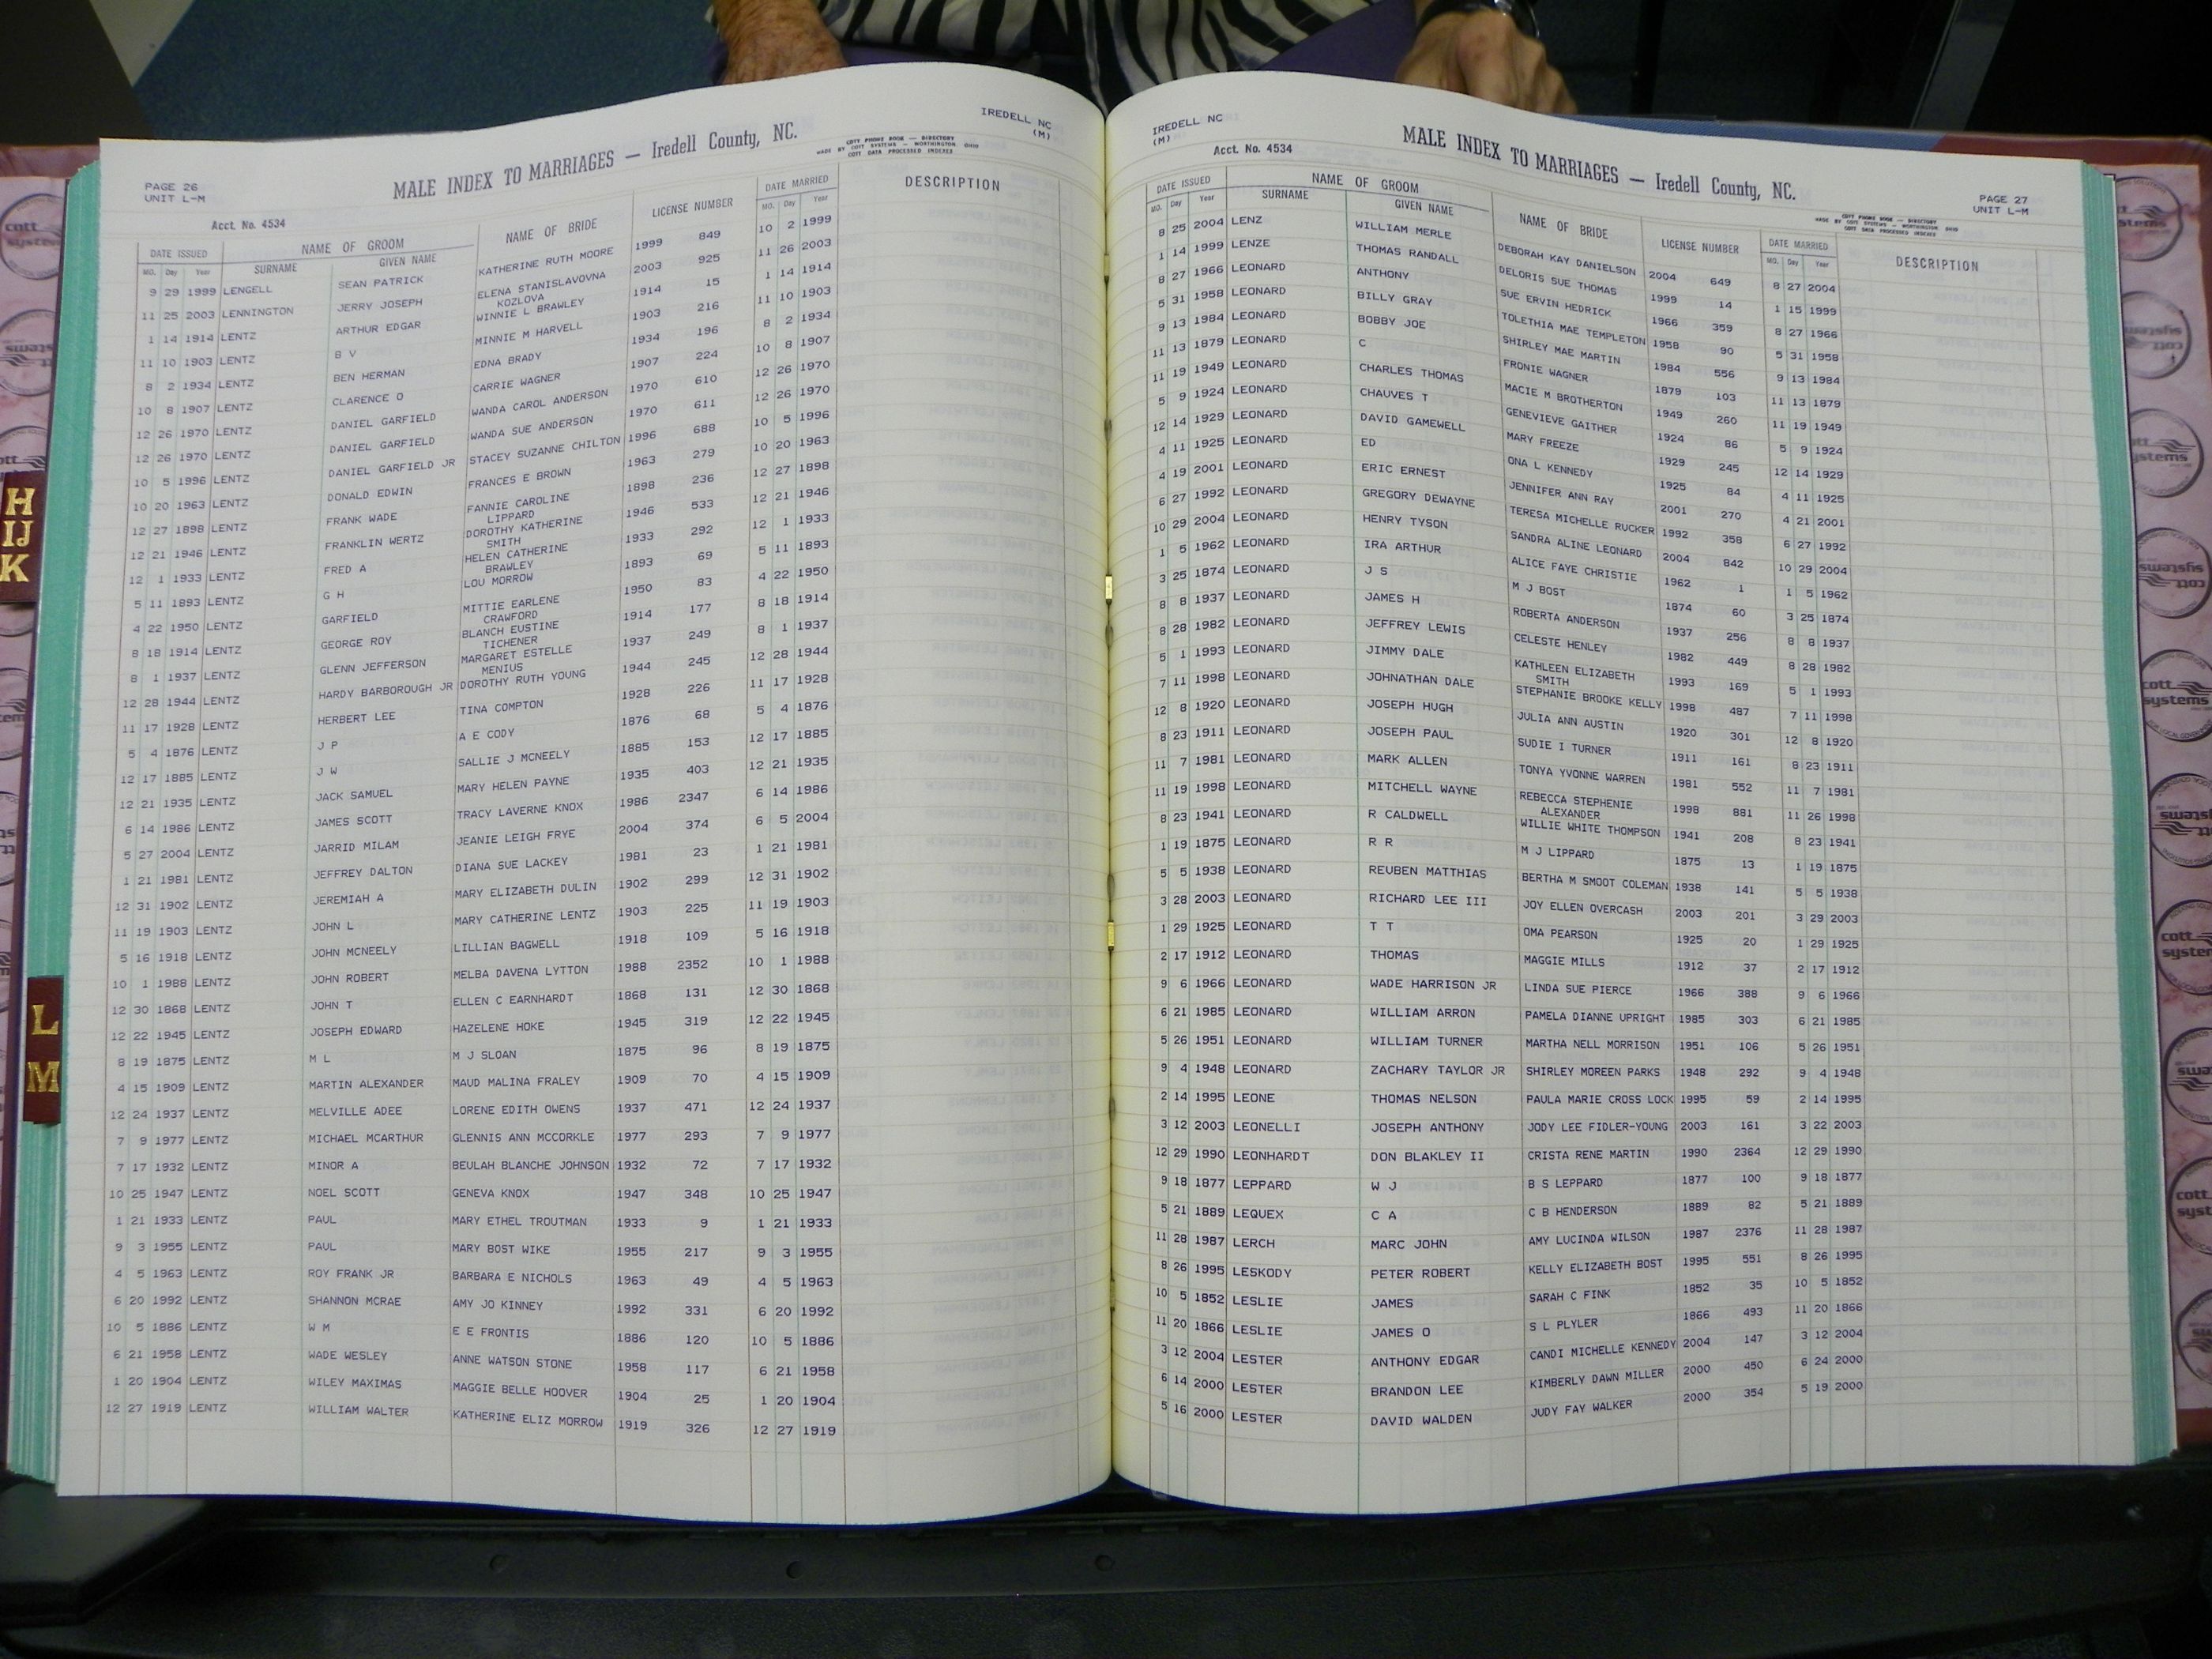 IREDELL NC
(M)
MALE INDEX TO MARRIAGES — Iredell County, NC.
COTT PHONE BOOK — DIRECTORY
MADE BY COTT SYSTEMS — WORTHINGTON, OHIO
COTT DATA PROCESSED INDEXES
PAGE 26
UNIT L-M
Acct. No. 4534
DATE ISSUED NAME OF GROOM NAME OF BRIDE LICENSE NUMBER DATE MARRIED DESCRIPTION
MO. Day Year SURNAME GIVEN NAME MO. Day Year
9 29 1999 LENGELL SEAN PATRICK KATHERINE RUTH MOORE 1999 849 10 2 1999
11 25 2003 LENNINGTON JERRY JOSEPH ELENA STANISLAVOVNA 2003 925 11 26 2003
KOZLOVA
1 14 1914 LENTZ ARTHUR EDGAR WINNIE L BRAWLEY 1914 15 1 14 1914
11 10 1903 LENTZ B V MINNIE M HARVELL 1903 216 11 10 1903
8 2 1934 LENTZ BEN HERMAN EDNA BRADY 1934 196 8 2 1934
10 8 1907 LENTZ CLARENCE O CARRIE WAGNER 1907 224 10 8 1907
12 26 1970 LENTZ DANIEL GARFIELD WANDA CAROL ANDERSON 1970 610 12 26 1970
12 26 1970 LENTZ DANIEL GARFIELD WANDA SUE ANDERSON 1970 611 12 26 1970
10 5 1996 LENTZ DANIEL GARFIELD JR STACEY SUZANNE CHILTON 1996 688 10 5 1996
10 20 1963 LENTZ DONALD EDWIN FRANCES E BROWN 1963 279 10 20 1963
12 27 1898 LENTZ FRANK WADE FANNIE CAROLINE 1898 236 12 27 1898
LIPPARD
12 21 1946 LENTZ FRANKLIN WERTZ DOROTHY KATHERINE 1946 533 12 21 1946
SMITH
12 1 1933 LENTZ FRED A HELEN CATHERINE 1933 292 12 1 1933
BRAWLEY
5 11 1893 LENTZ G H LOU MORROW 1893 69 5 11 1893
4 22 1950 LENTZ GARFIELD MITTIE EARLENE 1950 83 4 22 1950
CRAWFORD
8 18 1914 LENTZ GEORGE ROY BLANCH EUSTINE 1914 177 8 18 1914
TICHENER
8 1 1937 LENTZ GLENN JEFFERSON MARGARET ESTELLE 1937 249 8 1 1937
MENIUS
12 28 1944 LENTZ HARDY BARBOROUGH JR DOROTHY RUTH YOUNG 1944 245 12 28 1944
11 17 1928 LENTZ HERBERT LEE TINA COMPTON 1928 226 11 17 1928
5 4 1876 LENTZ J P A E CODY 1876 68 5 4 1876
12 17 1885 LENTZ J W SALLIE J MCNEELY 1885 153 12 17 1885
12 21 1935 LENTZ JACK SAMUEL MARY HELEN PAYNE 1935 403 12 21 1935
6 14 1986 LENTZ JAMES SCOTT TRACY LAVERNE KNOX 1986 2347 6 14 1986
5 27 2004 LENTZ JARRID MILAM JEANIE LEIGH FRYE 2004 374 6 5 2004
1 21 1981 LENTZ JEFFREY DALTON DIANA SUE LACKEY 1981 23 1 21 1981
12 31 1902 LENTZ JEREMIAH A MARY ELIZABETH DULIN 1902 299 12 31 1902
11 19 1903 LENTZ JOHN L MARY CATHERINE LENTZ 1903 225 11 19 1903
5 16 1918 LENTZ JOHN MCNEELY LILLIAN BAGWELL 1918 109 5 16 1918
10 1 1988 LENTZ JOHN ROBERT MELBA DAVENA LYTTON 1988 2352 10 1 1988
12 30 1868 LENTZ JOHN T ELLEN C EARNHARDT 1868 131 12 30 1868
12 22 1945 LENTZ JOSEPH EDWARD HAZELENE HOKE 1945 319 12 22 1945
8 19 1875 LENTZ M L M J SLOAN 1875 96 8 19 1875
4 15 1909 LENTZ MARTIN ALEXANDER MAUD MALINA FRALEY 1909 70 4 15 1909
12 24 1937 LENTZ MELVILLE ADEE LORENE EDITH OWENS 1937 471 12 24 1937
7 9 1977 LENTZ MICHAEL MCARTHUR GLENNIS ANN MCCORKLE 1977 293 7 9 1977
7 17 1932 LENTZ MINOR A BEULAH BLANCHE JOHNSON 1932 72 7 17 1932
10 25 1947 LENTZ NOEL SCOTT GENEVA KNOX 1947 348 10 25 1947
1 21 1933 LENTZ PAUL MARY ETHEL TROUTMAN 1933 9 1 21 1933
9 3 1955 LENTZ PAUL MARY BOST WIKE 1955 217 9 3 1955
4 5 1963 LENTZ ROY FRANK JR BARBARA E NICHOLS 1963 49 4 5 1963
6 20 1992 LENTZ SHANNON MCRAE AMY JO KINNEY 1992 331 6 20 1992
10 5 1886 LENTZ W M E E FRONTIS 1886 120 10 5 1886
6 21 1958 LENTZ WADE WESLEY ANNE WATSON STONE 1958 117 6 21 1958
1 20 1904 LENTZ WILEY MAXIMAS MAGGIE BELLE HOOVER 1904 25 1 20 1904
12 27 1919 LENTZ WILLIAM WALTER KATHERINE ELIZ MORROW 1919 326 12 27 1919
IREDELL NC
(M)
MALE INDEX TO MARRIAGES — Iredell County, NC.
Acct. No. 4534
PAGE 27
UNIT L-M
COTT PHONE BOOK — DIRECTORY
MADE BY COTT SYSTEMS — WORTHINGTON, OHIO
COTT DATA PROCESSED INDEXES
DATE ISSUED NAME OF GROOM NAME OF BRIDE LICENSE NUMBER DATE MARRIED DESCRIPTION
MO. Day Year SURNAME GIVEN NAME MO. Day Year
8 25 2004 LENZ WILLIAM MERLE DEBORAH KAY DANIELSON 2004 649 8 27 2004
1 14 1999 LENZE THOMAS RANDALL DELORIS SUE THOMAS 1999 14 1 15 1999
8 27 1966 LEONARD ANTHONY SUE ERVIN HEDRICK 1966 359 8 27 1966
5 31 1958 LEONARD BILLY GRAY TOLETHIA MAE TEMPLETON 1958 90 5 31 1958
9 13 1984 LEONARD BOBBY JOE SHIRLEY MAE MARTIN 1984 556 9 13 1984
11 13 1879 LEONARD C FRONIE WAGNER 1879 103 11 13 1879
11 19 1949 LEONARD CHARLES THOMAS MACIE M BROTHERTON 1949 260 11 19 1949
5 9 1924 LEONARD CHAUVES T GENEVIEVE GAITHER 1924 86 5 9 1924
12 14 1929 LEONARD DAVID GAMEWELL MARY FREEZE 1929 245 12 14 1929
4 11 1925 LEONARD ED ONA L KENNEDY 1925 84 4 11 1925
4 19 2001 LEONARD ERIC ERNEST JENNIFER ANN RAY 2001 270 4 21 2001
6 27 1992 LEONARD GREGORY DEWAYNE TERESA MICHELLE RUCKER 1992 358 6 27 1992
10 29 2004 LEONARD HENRY TYSON SANDRA ALINE LEONARD 2004 842 10 29 2004
1 5 1962 LEONARD IRA ARTHUR ALICE FAYE CHRISTIE 1962 1 1 5 1962
3 25 1874 LEONARD J S M J BOST 1874 60 3 25 1874
8 8 1937 LEONARD JAMES H ROBERTA ANDERSON 1937 256 8 8 1937
8 28 1982 LEONARD JEFFREY LEWIS CELESTE HENLEY 1982 449 8 28 1982
5 1 1993 LEONARD JIMMY DALE KATHLEEN ELIZABETH 1993 169 5 1 1993
SMITH
7 11 1998 LEONARD JOHNATHAN DALE STEPHANIE BROOKE KELLY 1998 487 7 11 1998
12 8 1920 LEONARD JOSEPH HUGH JULIA ANN AUSTIN 1920 301 12 8 1920
8 23 1911 LEONARD JOSEPH PAUL SUDIE I TURNER 1911 161 8 23 1911
11 7 1981 LEONARD MARK ALLEN TONYA YVONNE WARREN 1981 552 11 7 1981
11 19 1998 LEONARD MITCHELL WAYNE REBECCA STEPHENIE 1998 881 11 26 1998
ALEXANDER
8 23 1941 LEONARD R CALDWELL WILLIE WHITE THOMPSON 1941 208 8 23 1941
1 19 1875 LEONARD R R M J LIPPARD 1875 13 1 19 1875
5 5 1938 LEONARD REUBEN MATTHIAS BERTHA M SMOOT COLEMAN 1938 141 5 5 1938
3 28 2003 LEONARD RICHARD LEE III JOY ELLEN OVERCASH 2003 201 3 29 2003
1 29 1925 LEONARD T T OMA PEARSON 1925 20 1 29 1925
2 17 1912 LEONARD THOMAS MAGGIE MILLS 1912 37 2 17 1912
9 6 1966 LEONARD WADE HARRISON JR LINDA SUE PIERCE 1966 388 9 6 1966
6 21 1985 LEONARD WILLIAM ARRON PAMELA DIANNE UPRIGHT 1985 303 6 21 1985
5 26 1951 LEONARD WILLIAM TURNER MARTHA NELL MORRISON 1951 106 5 26 1951
9 4 1948 LEONARD ZACHARY TAYLOR JR SHIRLEY MOREEN PARKS 1948 292 9 4 1948
2 14 1995 LEONE THOMAS NELSON PAULA MARIE CROSS LOCK 1995 59 2 14 1995
3 12 2003 LEONELLI JOSEPH ANTHONY JODY LEE FIDLER-YOUNG 2003 161 3 22 2003
12 29 1990 LEONHARDT DON BLAKLEY II CRISTA RENE MARTIN 1990 2364 12 29 1990
9 18 1877 LEPPARD W J B S LEPPARD 1877 100 9 18 1877
5 21 1889 LEQUEX C A C B HENDERSON 1889 82 5 21 1889
11 28 1987 LERCH MARC JOHN AMY LUCINDA WILSON 1987 2376 11 28 1987
8 26 1995 LESKODY PETER ROBERT KELLY ELIZABETH BOST 1995 551 8 26 1995
10 5 1852 LESLIE JAMES SARAH C FINK 1852 35 10 5 1852
11 20 1866 LESLIE JAMES O S L PLYLER 1866 493 11 20 1866
3 12 2004 LESTER ANTHONY EDGAR CANDI MICHELLE KENNEDY 2004 147 3 12 2004
6 14 2000 LESTER BRANDON LEE KIMBERLY DAWN MILLER 2000 450 6 24 2000
5 16 2000 LESTER DAVID WALDEN JUDY FAY WALKER 2000 354 5 19 2000
H
IJ
K
L
M
cott
systems